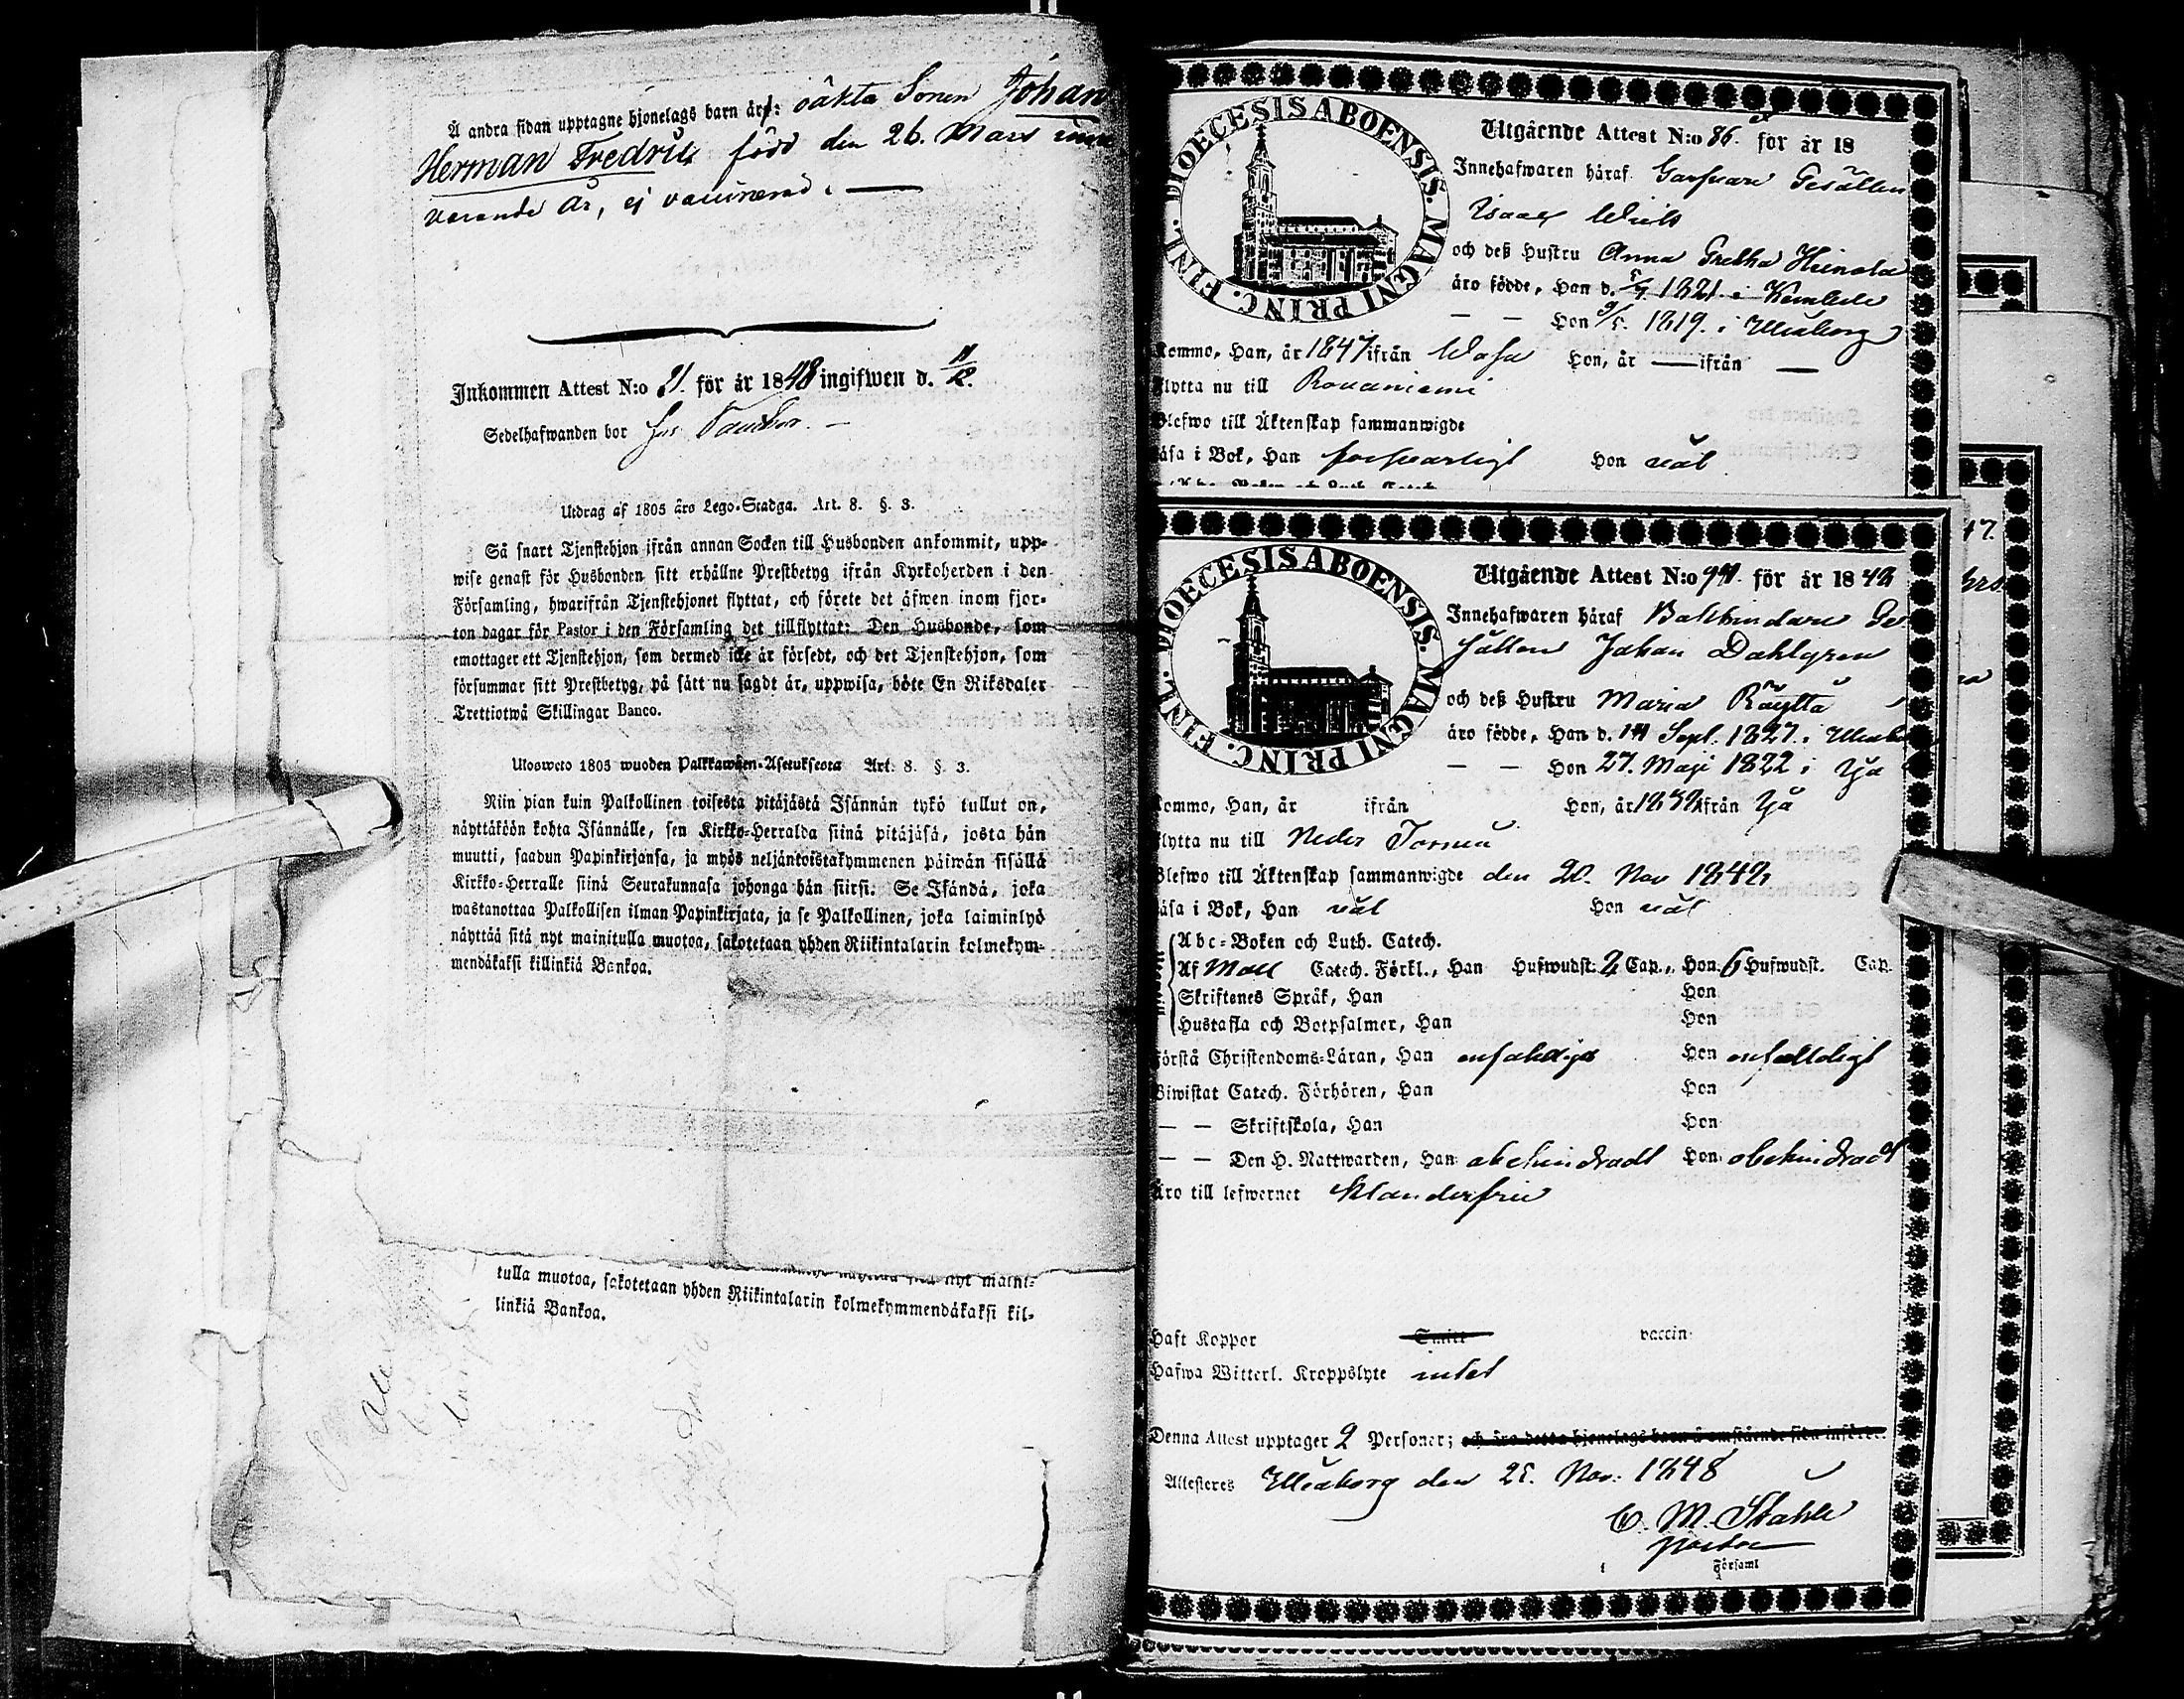 Å andra sidan upptagne hjonelags barn är: oäkta Sonen Johan
Herman Fredric född den 26. Mars inne
varande år, ej vaccinerad.
Inkommen Attest N:o 21. för år 1848 ingifwen d. 11/12.
Sedelhafwanden bor
Utdrag af 1805 års Lego-Stadga. Art. 8. §. 3.
Så snart Tjenstehjon ifrån annan Socken till Husbonden ankommit, upp-
wise genast för Husbonden sitt erhållne Prestbetyg ifrån Kyrkoherden i den
Församling, hwarifrån Tjenstehjonet flyttat, och förete det äfwen inom fjor-
ton dagar för Pastor i den Församling det tillflyttat: Den Husbonde, som
emottager ett Tjenstehjon, som dermed icke är försedt, och det Tjenstehjon, som
försummar sitt Prestbetyg, på sätt nu sagdt är, uppwisa, böte En Riksdaler
Trettiotwå Skillingar Banco.
Ulosweto 1805 wuoden Palkkawäen-Asetuksesta Art. 8. §. 3.
Niin pian kuin Palkollinen toisesta pitäjästä Isännän tykö tullut on,
näyttäköön kohta Isännälle, sen Kirkko-Herralda siinä pitäjäsä, josta hän
muutti, saadun Papinkirjansa, ja myös neljäntoistakymmenen päiwän sisällä
Kirkko-Herralle siinä Seurakunnasa johonga hän siirsi. Se Isändä, joka
wastanottaa Palkollisen ilman Papinkirjata, ja se Palkollinen, joka laiminlyö
näyttää sitä nyt mainitulla muotoa, sakotetaan yhden Riikintalarin kolmekym-
mendäkaksi killinkiä Bankoa.
tulla muotoa, sakotetaan yhden Riikintalarin kolmekymmendäkaksi kil-
linkiä Bankoa.
DIOECESIS ABOENSIS. MAGNI PRINC. FINL.
Utgående Attest N:o 86. för år 18
Innehafwaren häraf Garfvare Gesällen
Isaac
och deß Hustru Anna Gretha
äro födde, Han d. 5/4 1821. i Kembele
— — Hon 9/5. 1819. i Uleåborg
Kommo, Han, år 1847 ifrån Wasa Hon, år — ifrån —
Flytta nu till Rovaniemi
Blefwo till Äktenskap sammanwigde
Läsa i Bok, Han försvarligt Hon väl
DIOECESIS ABOENSIS. MAGNI PRINC. FINL.
Utgående Attest N:o 94. för år 1848
Innehafwaren häraf Bokbindare Ge
sällen Johan Dahlgren
och deß Hustru Maria Räyttä
äro födde, Han d. 14 Sept. 1827. i Uleåb
— — Hon 27. Maji 1822 i Ijå
Kommo, Han, år ifrån Hon, år ifrån Ijå
Flytta nu till Neder Torneå
Blefwo till Äktenskap sammanwigde den 20. Nov 1848
Läsa i Bok, Han väl Hon väl
Abc-Boken och Luth. Catech.
Af Catech. Förkl., Han Hufwudst. 2 Cap., Hon 6 Hufwudst. Cap.
Skriftenes Språk, Han Hon
Hustafla och Botpsalmer, Han Hon
Förstå Christendoms-Läran, Han enfaldigt Hon enfaldigt
Biwistat Catech. Förhören, Han Hon
— — Skriftskola, Han Hon
— — Den H. Nattwarden, Han obehindradt Hon obehindradt
Äro till lefwernet klanderfrie
Haft Koppor Smitt vaccin
Hafwa Witterl. Kroppslyte intet
Denna Attest upptager 2 Personer; och äro detta hjonelags barn å omstående sida införde.
Attesteras Uleåborg den 25. Nov. 1848
C. M. Ståhle
Pastor
Församl